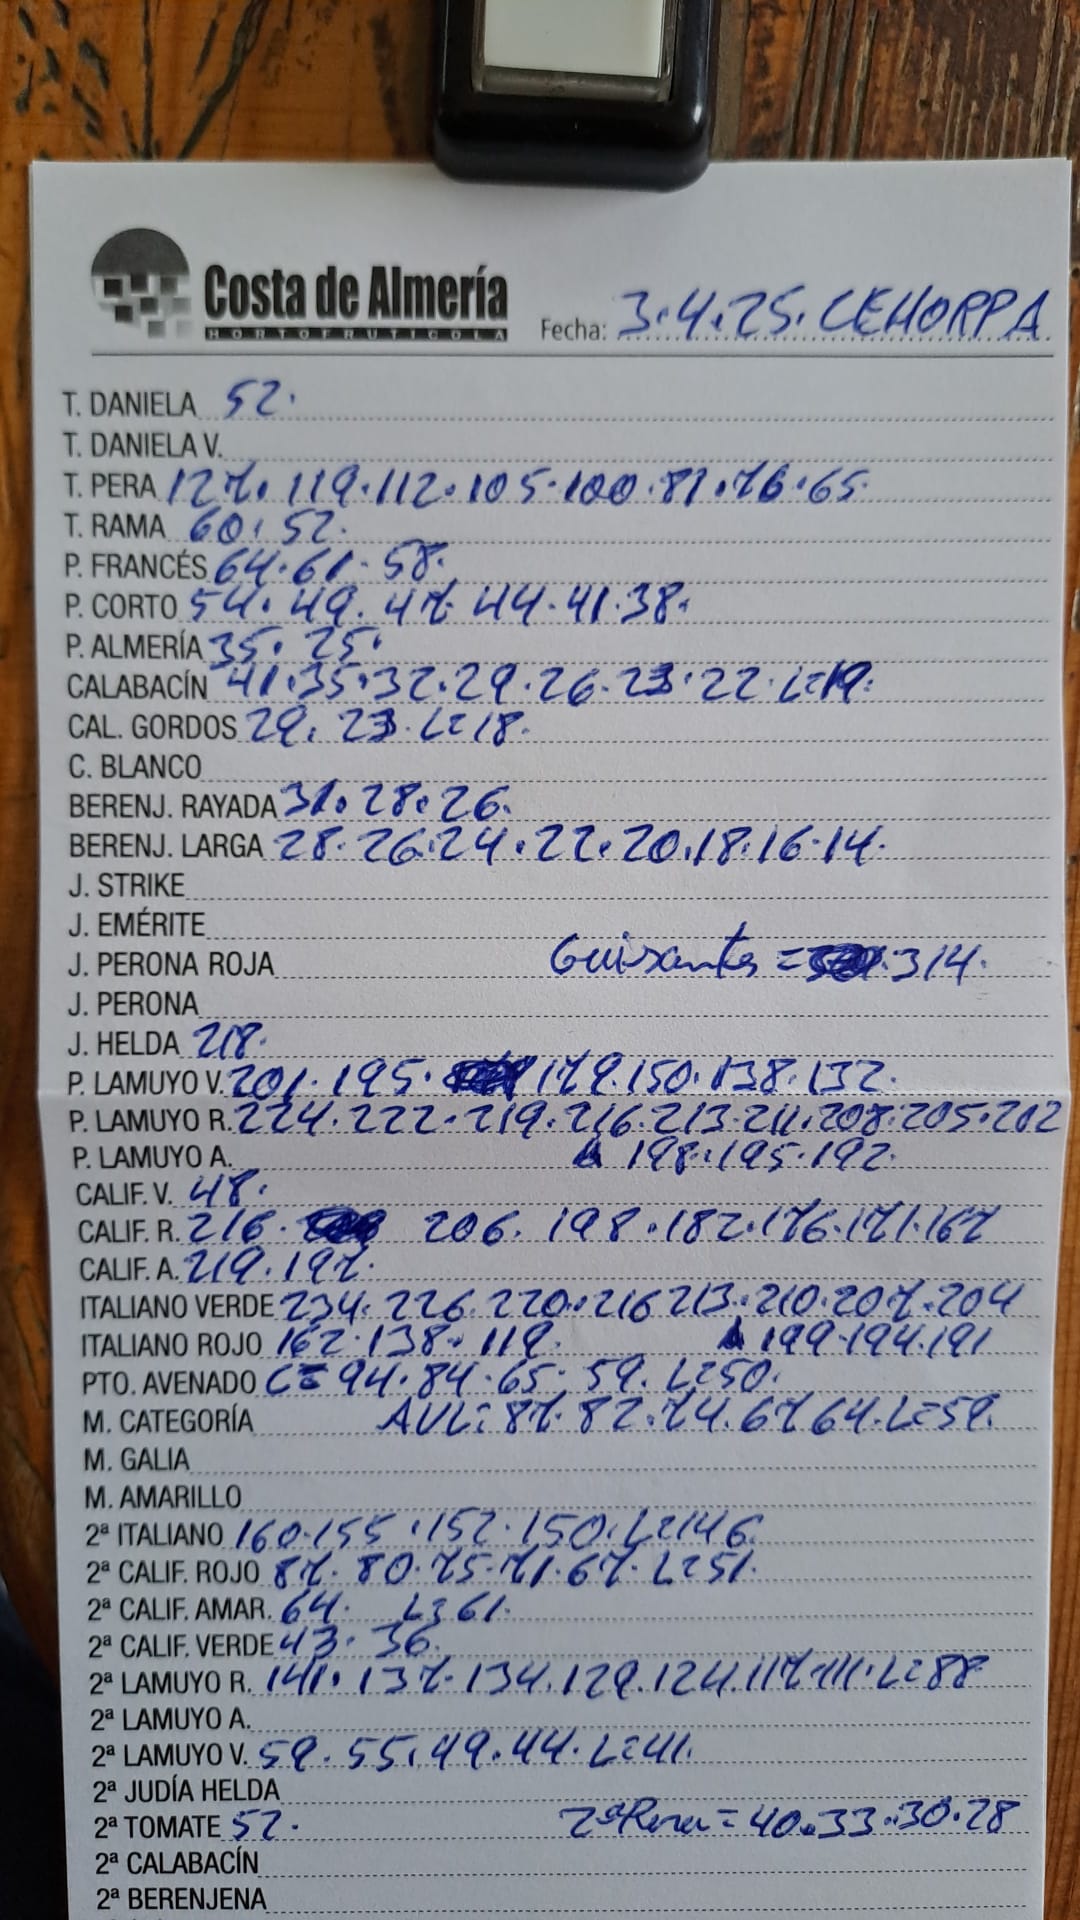 Costa de Almería
HORTOFRUTICOLA
Fecha: 3.4.25. CEHORPA
T. DANIELA 52.
T. DANIELA V.
T. PERA 127. 119. 112. 105. 100. 87. 76. 65.
T. RAMA 60. 52.
P. FRANCÉS 64. 61. 58.
P. CORTO 54. 49. 47. 44. 41. 38.
P. ALMERÍA 35. 25.
CALABACÍN 41. 35. 32. 29. 26. 23. 22. L=19.
CAL. GORDOS 29. 23. L=18.
C. BLANCO
BERENJ. RAYADA 31. 28. 26.
BERENJ. LARGA 28. 26. 24. 22. 20. 18. 16. 14.
J. STRIKE
J. EMÉRITE
J. PERONA ROJA Guisantes = 314.
J. PERONA
J. HELDA 218.
P. LAMUYO V. 201. 195. 179. 150. 138. 132.
P. LAMUYO R. 224. 222. 219. 216. 213. 211. 208. 205. 202
P. LAMUYO A. 198. 195. 192.
CALIF. V. 48.
CALIF. R. 216. 206. 198. 182. 176. 171. 167
CALIF. A. 219. 197.
ITALIANO VERDE 234. 226. 220. 216 213. 210. 207. 204
ITALIANO ROJO 162. 138. 119. 199. 194. 191
PTO. AVENADO C= 94. 84. 65. 59. L=50.
M. CATEGORÍA AVL: 87. 82. 74. 67 64. L=59.
M. GALIA
M. AMARILLO
2ª ITALIANO 160. 155. 152. 150. L=146.
2ª CALIF. ROJO 87. 80. 75. 71. 67. L=51.
2ª CALIF. AMAR. 64. L=61.
2ª CALIF. VERDE 43. 36.
2ª LAMUYO R. 141. 137. 134. 129. 124. 117. 111. L=88
2ª LAMUYO A.
2ª LAMUYO V. 59. 55. 49. 44. L=41.
2ª JUDÍA HELDA
2ª TOMATE 52. 2ª Pera = 40. 33. 30. 28
2ª CALABACÍN
2ª BERENJENA